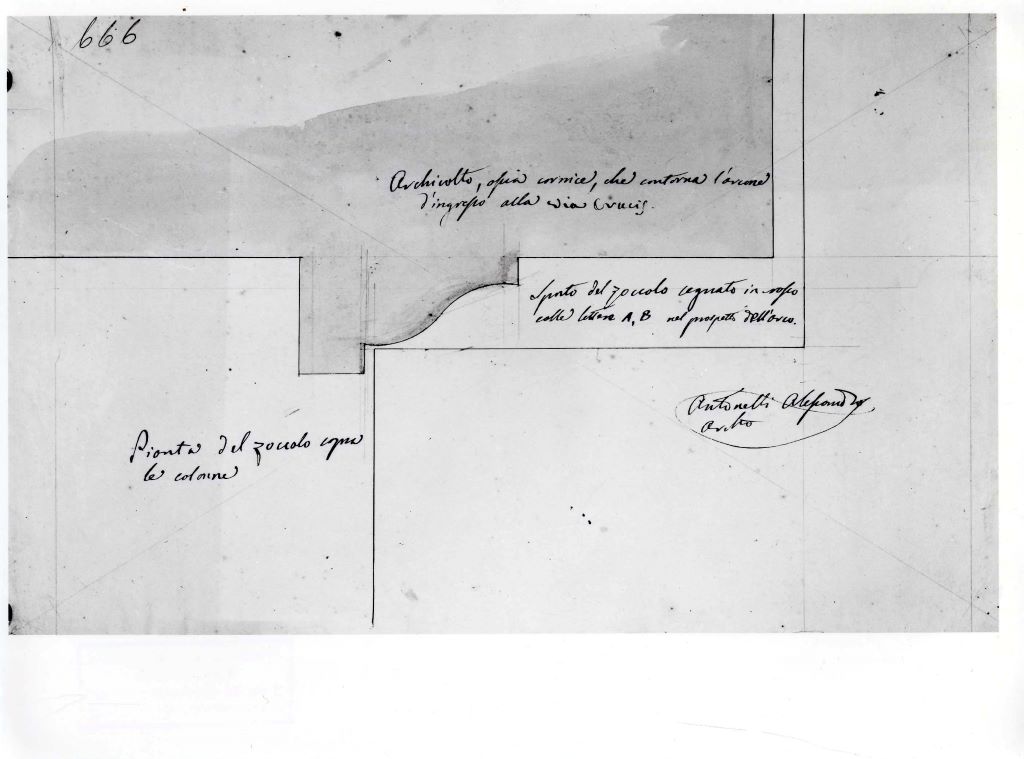 666
Archivolto, ossia cornice, che contorna l'arcone
d'ingresso alla via Crucis.
Sporto del zoccolo segnato in rosso
colle lettere A, B nel prospetto dell'arco.
Antonelli Alessandro
Archto
Pianta del zoccolo sopra
le colonne